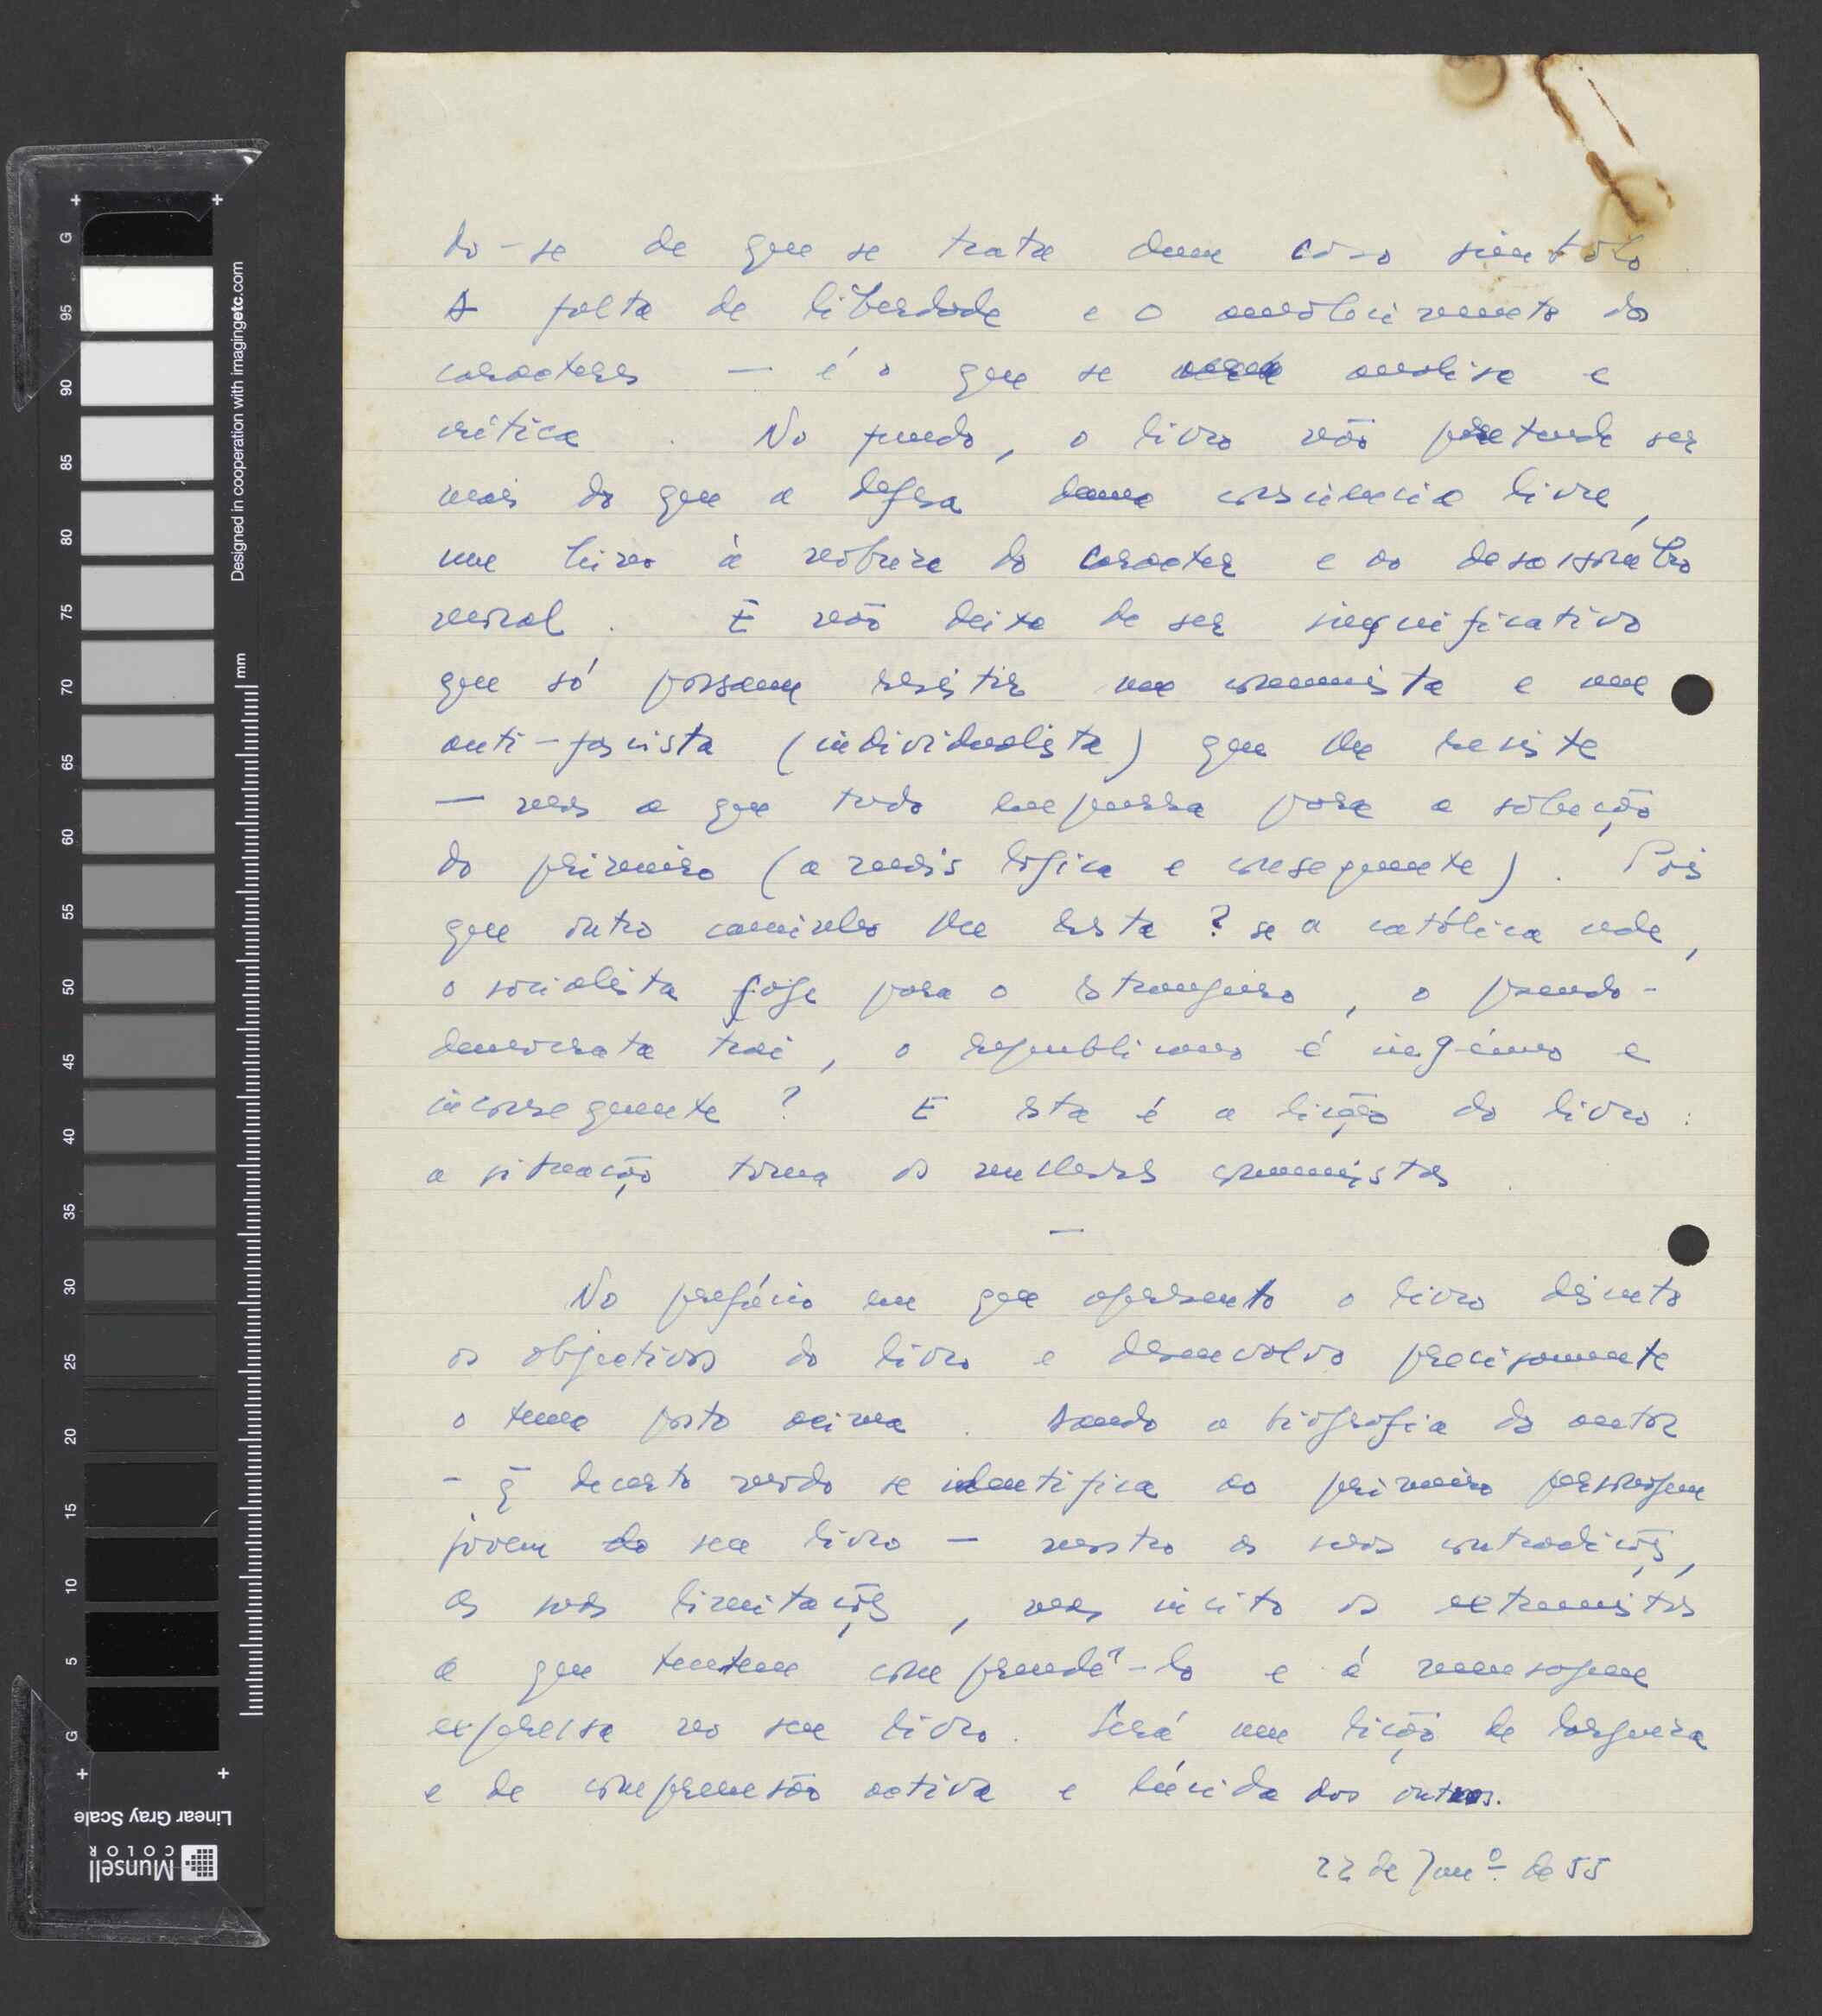 do-se de que se trata dum caso simbólo
A falta de liberdade e o amolecimento dos
caracteres — é o que se analisa e
critica. No fundo, o livro não pretende ser
mais do que a defesa duma consciencia livre,
um hino à nobreza do caracter e ao desassombro
moral. E não deixa de ser significativo
que só possam resistir um comunista e um
anti-fascista (individualista) que lhe resiste
— mas a que tudo empurra para a solução
do primeiro (a mais lógica e consequente). Pois
que outro caminho lhe resta? se a católica cede,
o socialista foge para o estrangeiro, o pseudo-
democrata trai, o republicano é ingénuo e
inconsequente? E esta é a lição do livro:
a situação torna os melhores comunistas.
—
No prefácio em que apresento o livro discuto
os objectivos do livro e desenvolvo precisamente
o tema posto acima. Usando a biografia do autor
- q̃ de certo modo se identifica ao primeiro personagem
jovem do seu livro — mostro as suas contradições,
as suas limitações, mas incito os extremistas
a que tentem compreendê-lo e à mensagem
expressa no seu livro. Será um lição de largueza
e de compreensão activa e lúcida dos outros.
22 de Janº. de 55
Designed in cooperation with imagingetc.com
mm
G 95 90 85 80 75 70 65 60 55 50 45 40 35 30 25 20 15 10 5 G
Linear Gray Scale
Munsell
COLOR